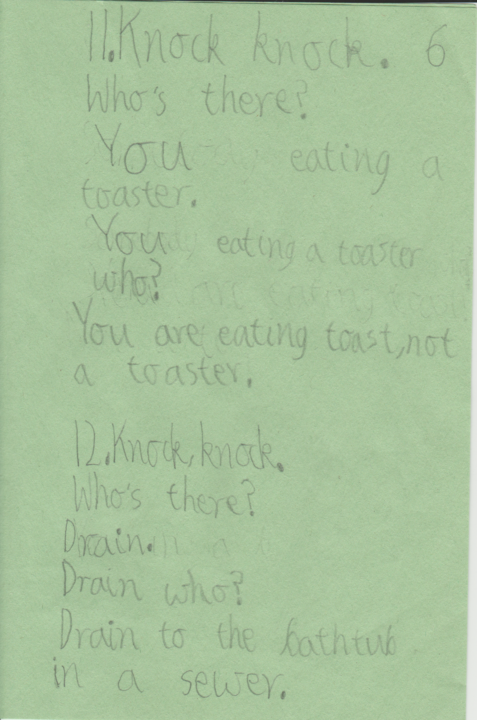 11.Knock knock. 6
Who's there?
You eating a
toaster.
You eating a toaster
who?
You are eating toast,not
a toaster.
12.Knock,knock.
Who's there?
Drain.
Drain who?
Drain to the bathtub
in a sewer.